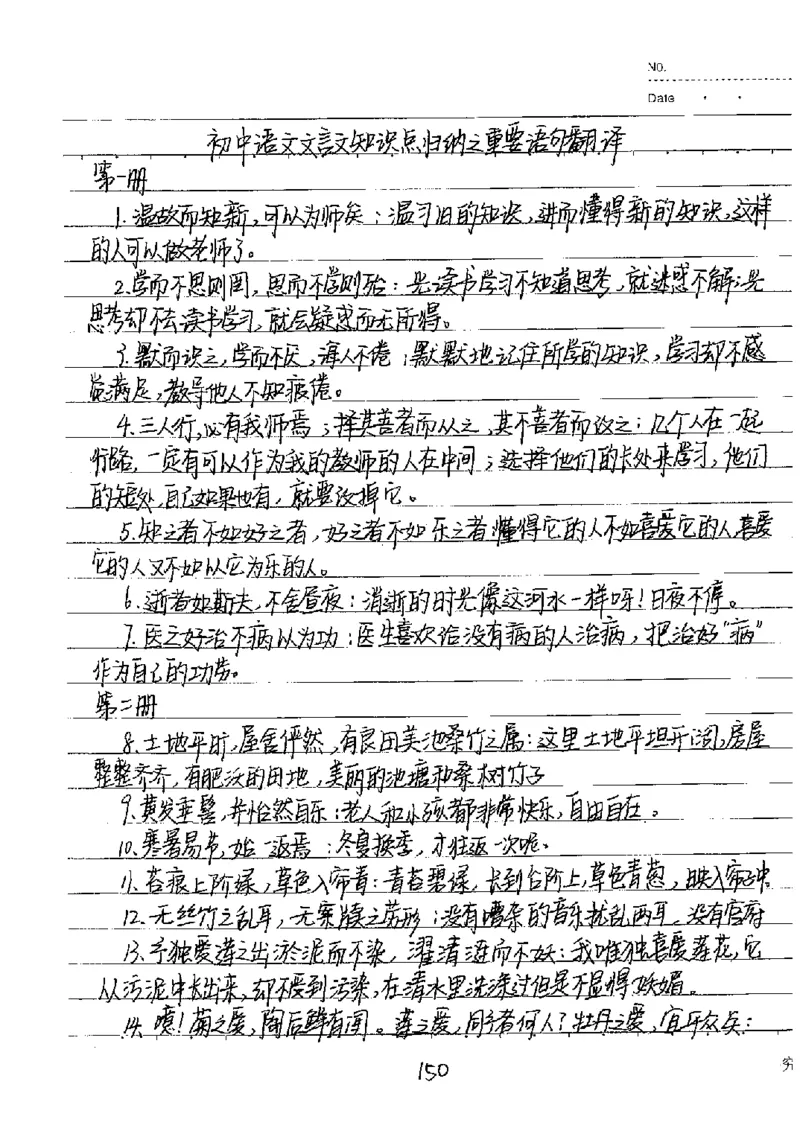 No.
Date
初中语文文言文知识点归纳之重要语句翻译
第一册
1.温故而知新,可以为师矣:温习旧的知识,进而懂得新的知识,这样
的人可以做老师了。
2.学而不思则罔,思而不学则殆:光读书学习不知道思考,就迷惑不解;光
思考却不去读书学习,就会疑惑而无所得。
3.默而识之,学而不厌,诲人不倦:默默地记住所学的知识,学习却不感
觉满足,教导他人不知疲倦。
4.三人行,必有我师焉;择其善者而从之,其不善者而改之:几个人在一起
行路,一定有可以作为我的教师的人在中间;选择他们的长处来学习,他们
的短处,自己如果也有,就要改掉它。
5.知之者不如好之者,好之者不如乐之者:懂得它的人不如喜爱它的人,喜爱
它的人又不如以它为乐的人。
6.逝者如斯夫,不舍昼夜:消逝的时光像这河水一样呀!日夜不停。
7.医之好治不病以为功:医生喜欢给没有病的人治病,把治好"病"
作为自己的功劳。
第二册
8.土地平旷,屋舍俨然,有良田美池桑竹之属:这里土地平坦开阔,房屋
整整齐齐,有肥沃的田地,美丽的池塘和桑树竹子
9.黄发垂髫,并怡然自乐:老人和小孩都非常快乐,自由自在。
10.寒暑易节,始一返焉:冬夏换季,才往返一次呢。
11.苔痕上阶绿,草色入帘青:青苔碧绿,长到台阶上,草色青葱,映入帘中.
12.无丝竹之乱耳,无案牍之劳形:没有嘈杂的音乐扰乱两耳,没有官府
13.予独爱莲之出淤泥而不染,濯清涟而不妖:我唯独喜爱莲花,它
从污泥中长出来,却不受到污染,在清水里洗涤过但是不显得妖媚。
14.噫!菊之爱,陶后鲜有闻。莲之爱,同予者何人?牡丹之爱,宜乎众矣:
150
穷